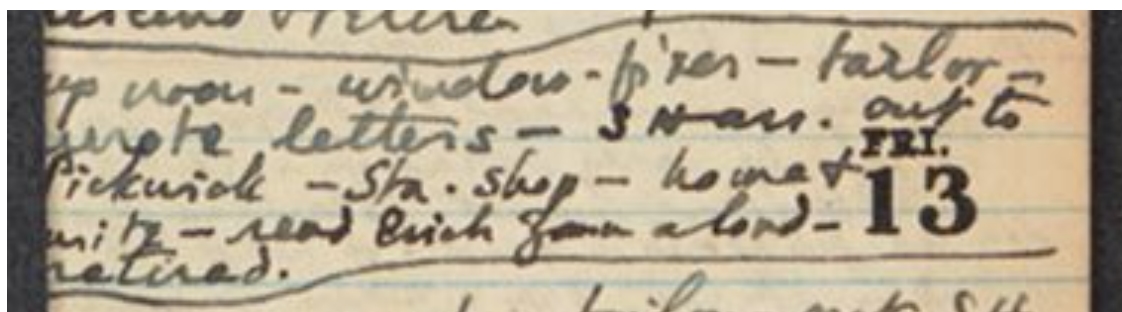 up noon - window-fixer - tailor -
wrote letters - S Han. out to
FRI.
Pickwick - Sta. shop - home +
13
write - read Erich Fromm aloud -
retired.